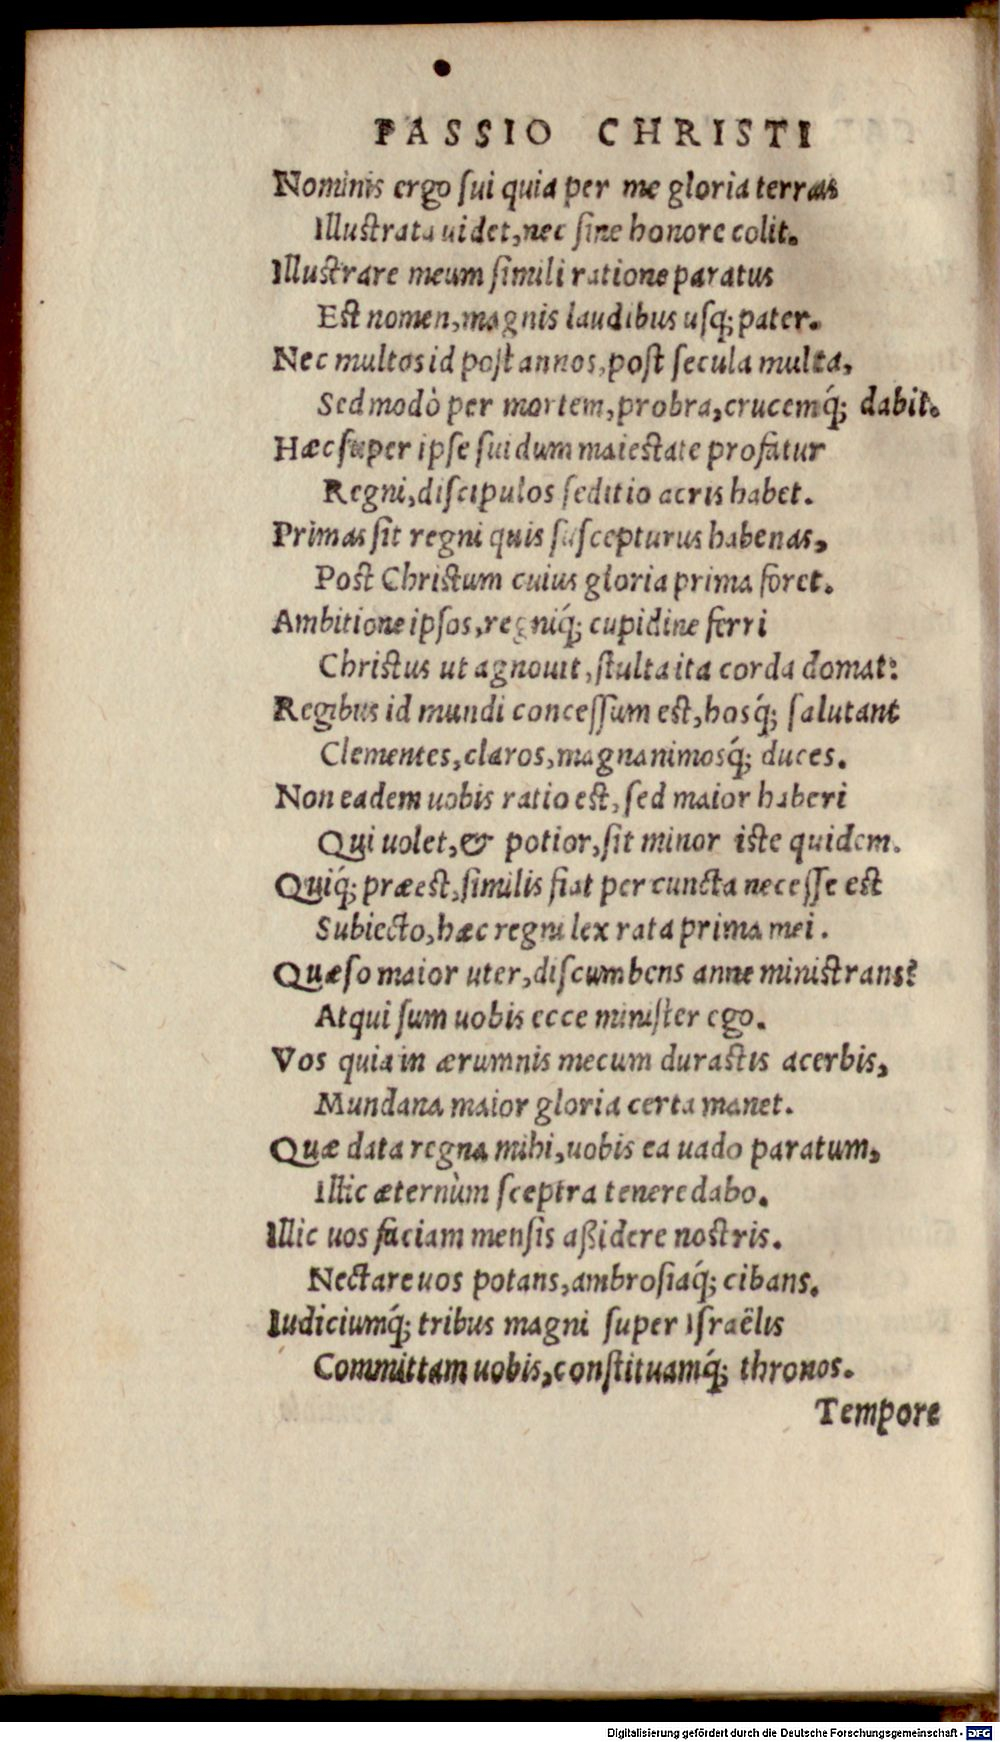 PASSIO CHRISTI
Nominis ergo ſui quia per me gloria terras
Illuſtrata uidet, nec ſine honore colit.
Illuſtrare meum ſimili ratione paratus
Eſt nomen, magnis laudibus uſq; pater.
Nec multos id poſt annos, poſt ſecula multa,
Sed modò per mortem, probra, crucemq́; dabit.
Hæc ſuper ipſe ſui dum maieſtate profatur
Regni, diſcipulos ſeditio acris habet.
Primas ſit regni quis ſuſcepturus habenas,
Poſt Chriſtum cuius gloria prima foret.
Ambitione ipſos, regniq́; cupidine ferri
Chriſtus ut agnouit, ſtulta ita corda domat:
Regibus id mundi conceſſum eſt, hosq́; ſalutant
Clementes, claros, magnanimosq́; duces.
Non eadem uobis ratio eſt, ſed maior haberi
Qui uolet, & potior, ſit minor iſte quidem.
Quiq́; præeſt, ſimilis fiat per cuncta neceſſe eſt
Subiecto, hæc regni lex rata prima mei.
Quæſo maior uter, diſcumbens anne miniſtrans?
Atqui ſum uobis ecce miniſter ego.
Vos quia in ærumnis mecum duraſtis acerbis,
Mundana maior gloria certa manet.
Quæ data regna mihi, uobis ea uado paratum,
Illic æternùm ſceptra tenere dabo.
Illic uos faciam menſis aßidere noſtris.
Nectare uos potans, ambroſiaq́; cibans.
Iudiciumq́; tribus magni ſuper Iſraëlis
Committam uobis, conſtituamq́; thronos.
Tempore
Digitalisierung gefördert durch die Deutsche Forschungsgemeinschaft - DFG